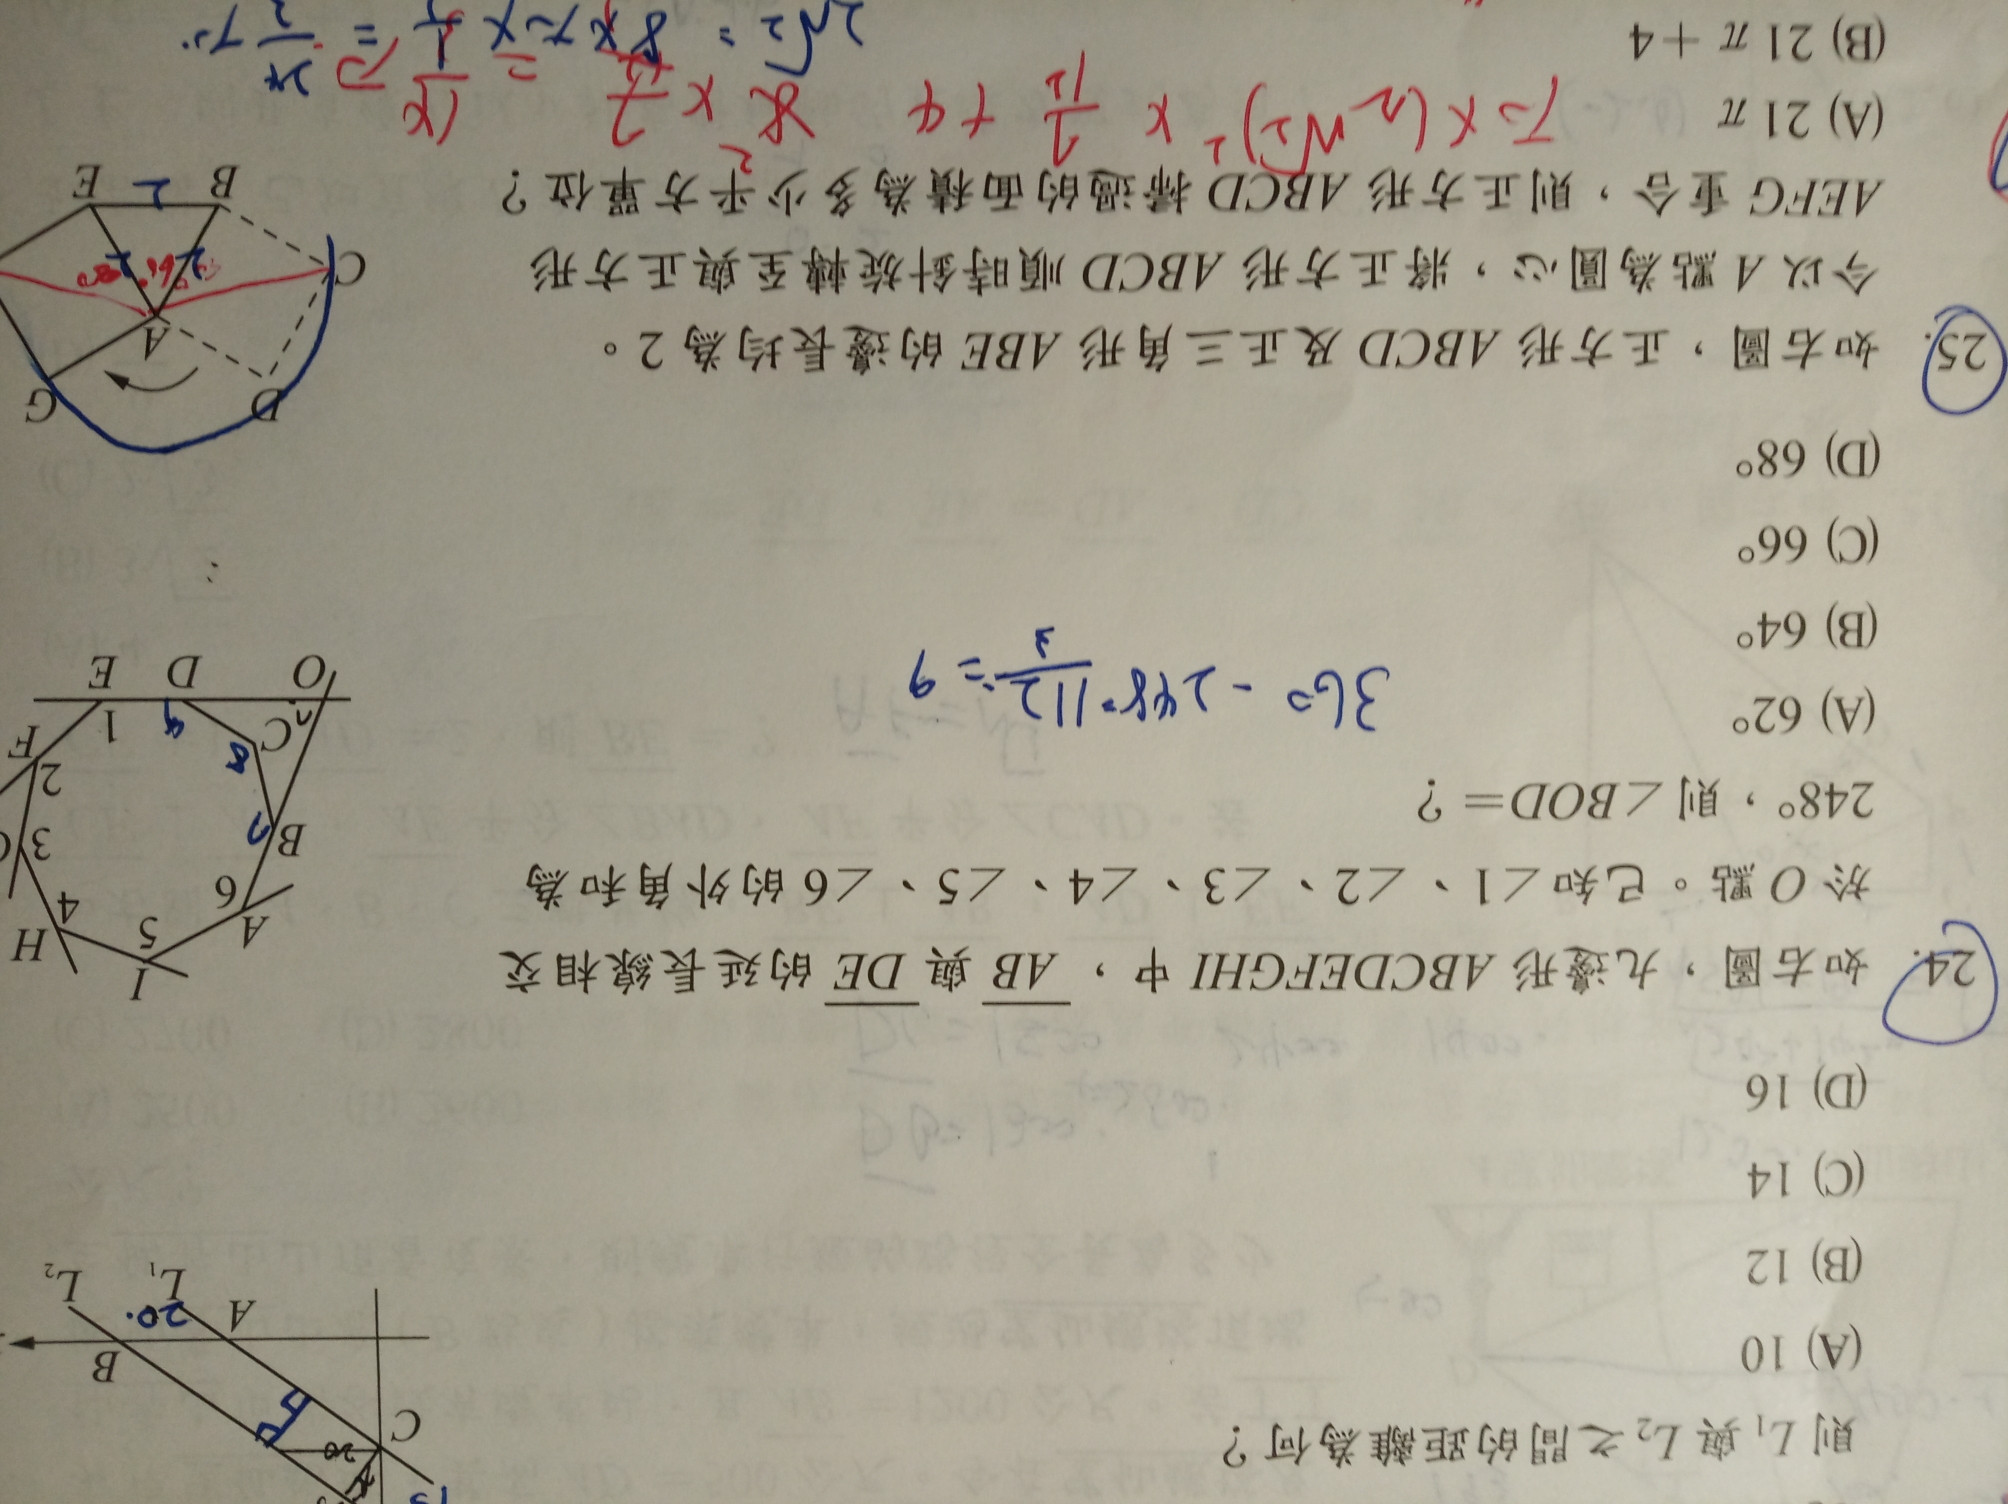 則 L₁ 與 L₂ 之間的距離為何？
(A) 10
(B) 12
(C) 14
(D) 16
C
B
A
L₁
L₂
20
20
24. 如右圖，九邊形 ABCDEFGHI 中，AB 與 DE 的延長線相交
於 O 點。已知 ∠1、∠2、∠3、∠4、∠5、∠6 的外角和為
248°，則 ∠BOD＝？
(A) 62°
(B) 64°
(C) 66°
(D) 68°
360 - 248 = 112
3
= 9
I
H
A
5
4
6
B
3
7
C
8
F
2
1
9
O
D
E
25. 如右圖，正方形 ABCD 及正三角形 ABE 的邊長均為 2。
今以 A 點為圓心，將正方形 ABCD 順時針旋轉至與正方形
AEFG 重合，則正方形 ABCD 掃過的面積為多少平方單位？
(A) 21π
(B) 21π＋4
D
G
A
C
B
E
2
2
2
π × (2√2)² × 7/12 + 4
2√2 = 8 × π ×